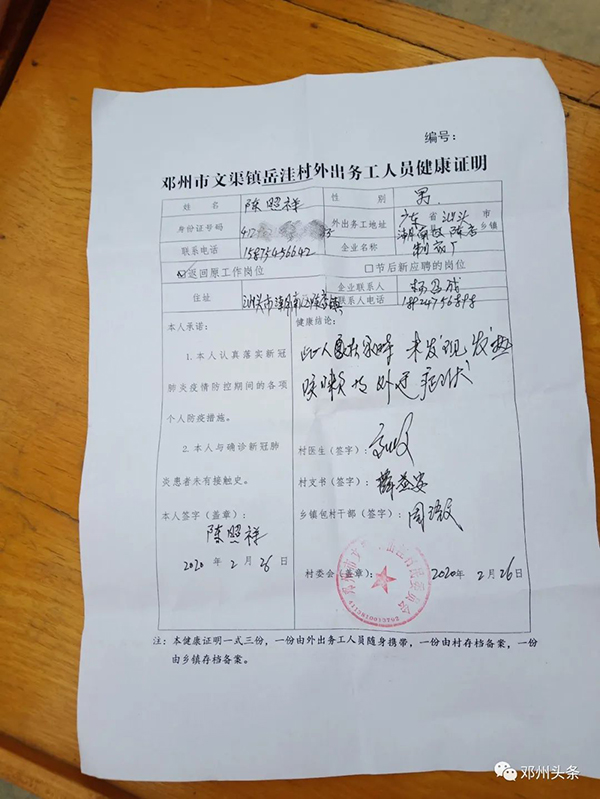 编号：
邓州市文渠镇岳洼村外出务工人员健康证明
姓名 陈照祥 性别 男
身份证号码 412 外出务工地址 广东省汕头市
潮南区陈店乡镇
联系电话 15875456642 企业名称 制衣厂
☑返回原工作岗位 □节后新应聘的岗位
住址 汕头市潮南区陈店镇 企业联系人
联系人电话
本人承诺： 健康结论：
1.本人认真落实新冠
肺炎疫情防控期间的各项
个人防疫措施。
此人在家时 未发现发热
咳嗽 症状
2.本人与确诊新冠肺
炎患者未有接触史。
村医生（签字）：
村支书（签字）：
乡镇包村干部（签字）：
本人签字（盖章）：
陈照祥
2020年2月26日
村委会（盖章）： 2020年2月26日
注：本健康证明一式三份，一份由外出务工人员随身携带，一份由村存档备案，一份
由乡镇存档备案。
邓州头条